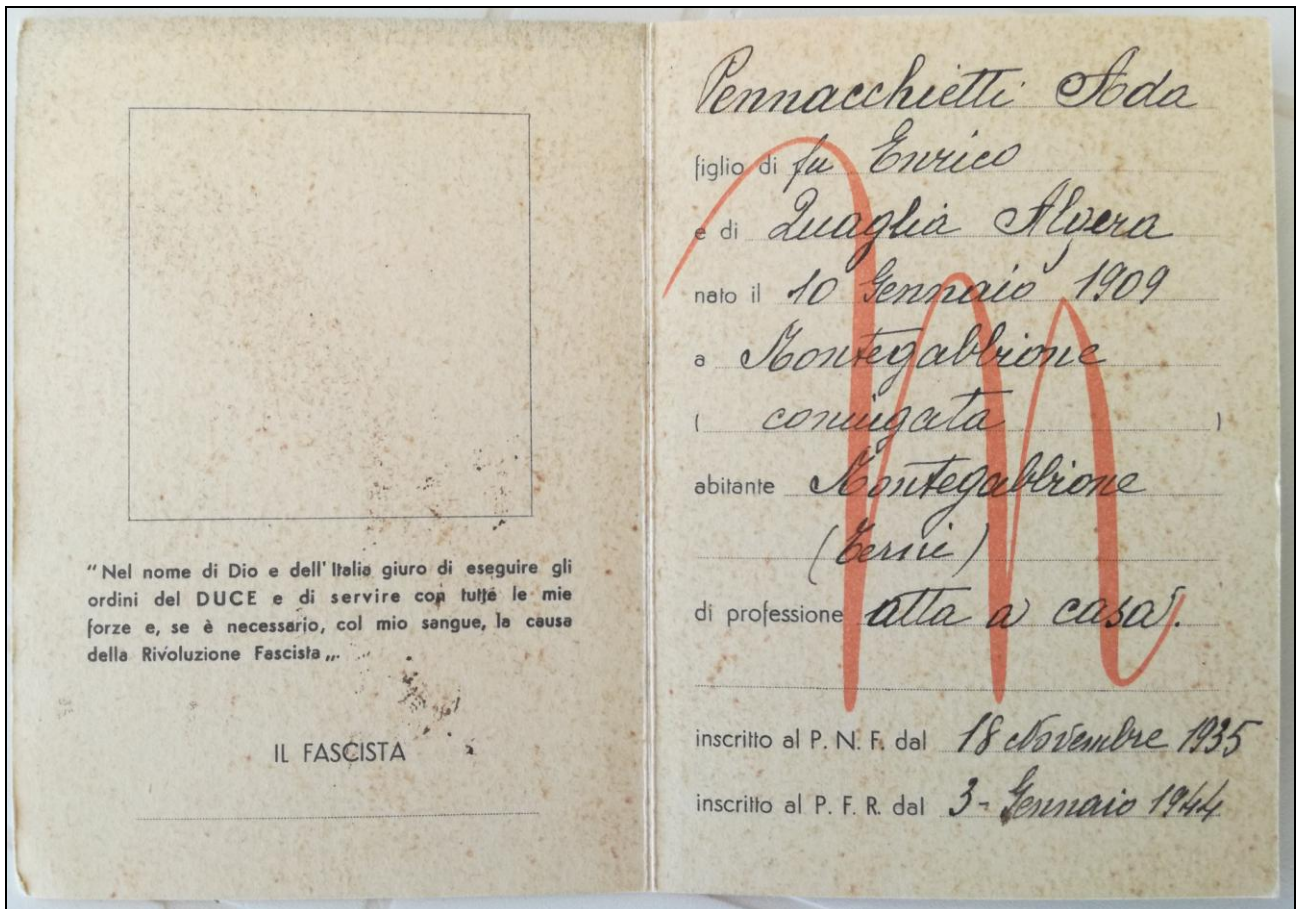 "Nel nome di Dio e dell'Italia giuro di eseguire gli
ordini del DUCE e di servire con tutte le mie
forze e, se è necessario, col mio sangue, la causa
della Rivoluzione Fascista„.
IL FASCISTA
Pennacchietti Ada
figlio di fu Enrico
e di Quaglia Alvera
nato il 10 Gennaio 1909
a Montegabbione
( coniugata )
abitante Montegabbione
(Terni)
di professione atta a casa.
inscritto al P. N. F. dal 18 Novembre 1935
inscritto al P. F. R. dal 3 - Gennaio 1944